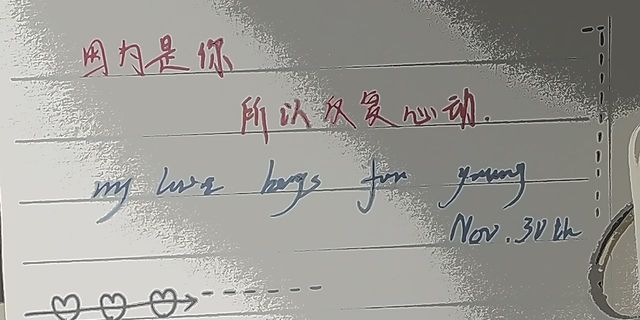 因为是你
所以反复心动.
my love hugs for young
Nov. 30th